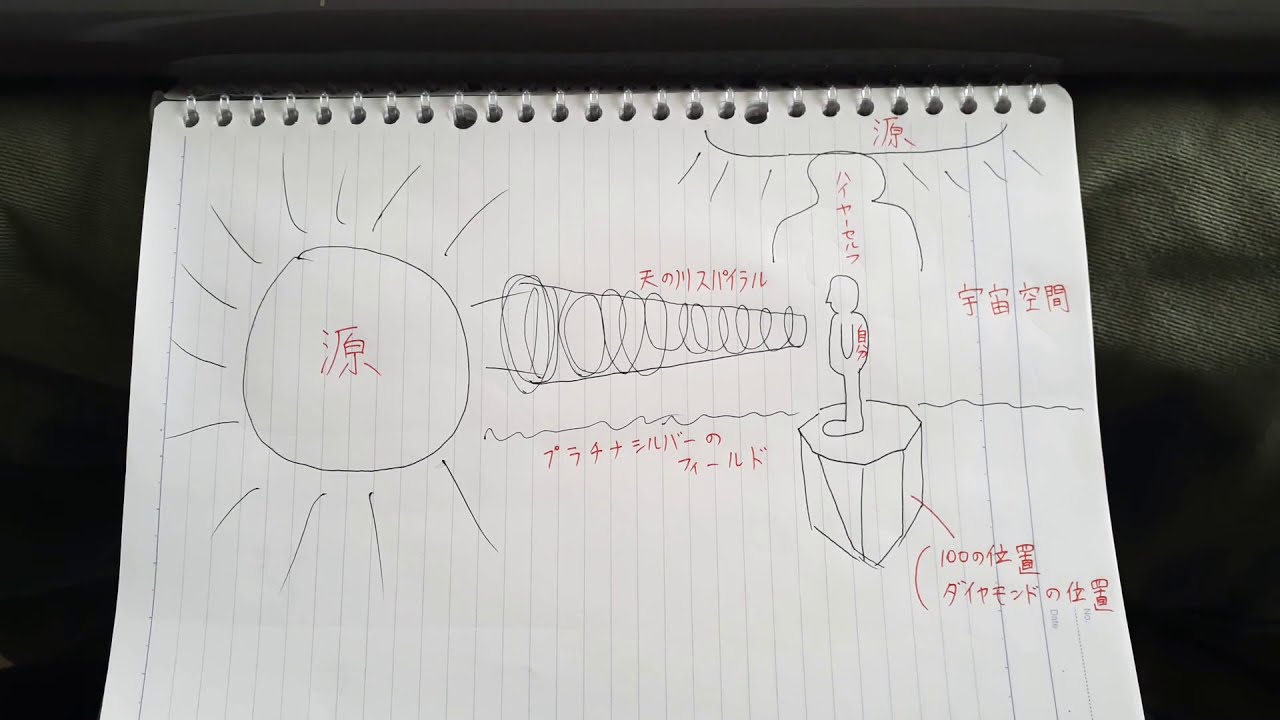 源
ハイヤーセルフ
天の川スパイラル
宇宙空間
源
自分
プラチナシルバーの
フィールド
100の位置
ダイヤモンドの位置
No.
Date